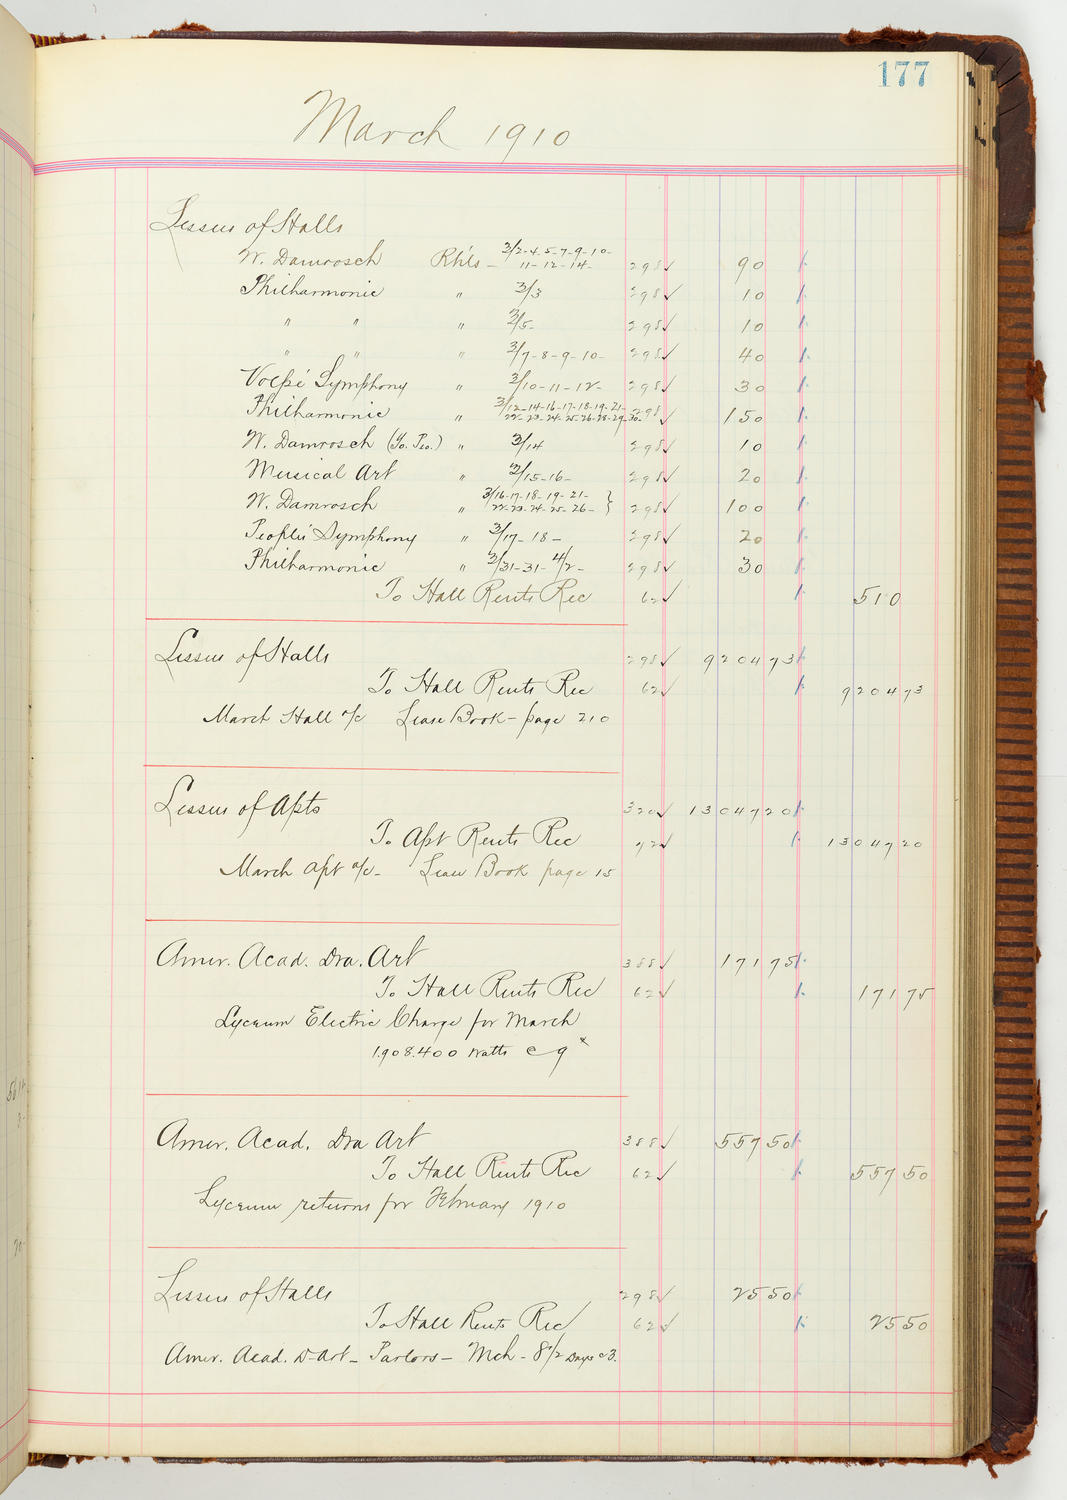 177
March 1910
Lessees of Halls
W. Damrosch Rhls - 3/2-4-5-7-9-10-
11-12-14- 298 ✓ 90
Philharmonic " 3/3 298 ✓ 10
" " " 3/5- 298 ✓ 10
" " " 3/7-8-9-10- 298 ✓ 40
Volpé Symphony " 3/10-11-12- 298 ✓ 30
Philharmonic " 3/12-14-16-17-18-19-21-
22-23-24-25-26-28-29-30- 298 ✓ 150
W. Damrosch (Yo. Peo.) " 3/14 298 ✓ 10
Musical Art " 3/15-16- 298 ✓ 20
W. Damrosch " 3/16-17-18-19-21-
22-23-24-25-26- } 298 ✓ 100
Peoples' Symphony " 3/17-18- 298 ✓ 20
Philharmonic " 3/31-31-4/2- 298 ✓ 30
To Hall Rents Rec 62 ✓ 510
Lessees of Halls 298 ✓ 9204 73
To Hall Rents Rec 62 ✓ 9204 73
March Hall a/c Lease Book - page 210
Lessees of Apts 320 ✓ 13047 20
To Apt Rents Rec 72 ✓ 13047 20
March Apt a/c - Lease Book page 15
Amer. Acad. Dra. Art 388 ✓ 171 75
To Hall Rents Rec 62 ✓ 171 75
Lyceum Electric Charge for March
1.908.400 Watts @ 9
Amer. Acad. Dra Art 388 ✓ 557 50
To Hall Rents Rec 62 ✓ 557 50
Lyceum returns for February 1910
Lessees of Halls 298 ✓ 25 50
To Hall Rents Rec 62 ✓ 25 50
Amer. Acad. D-Art - Parlors - Mch - 8 1/2 Days @ 3.